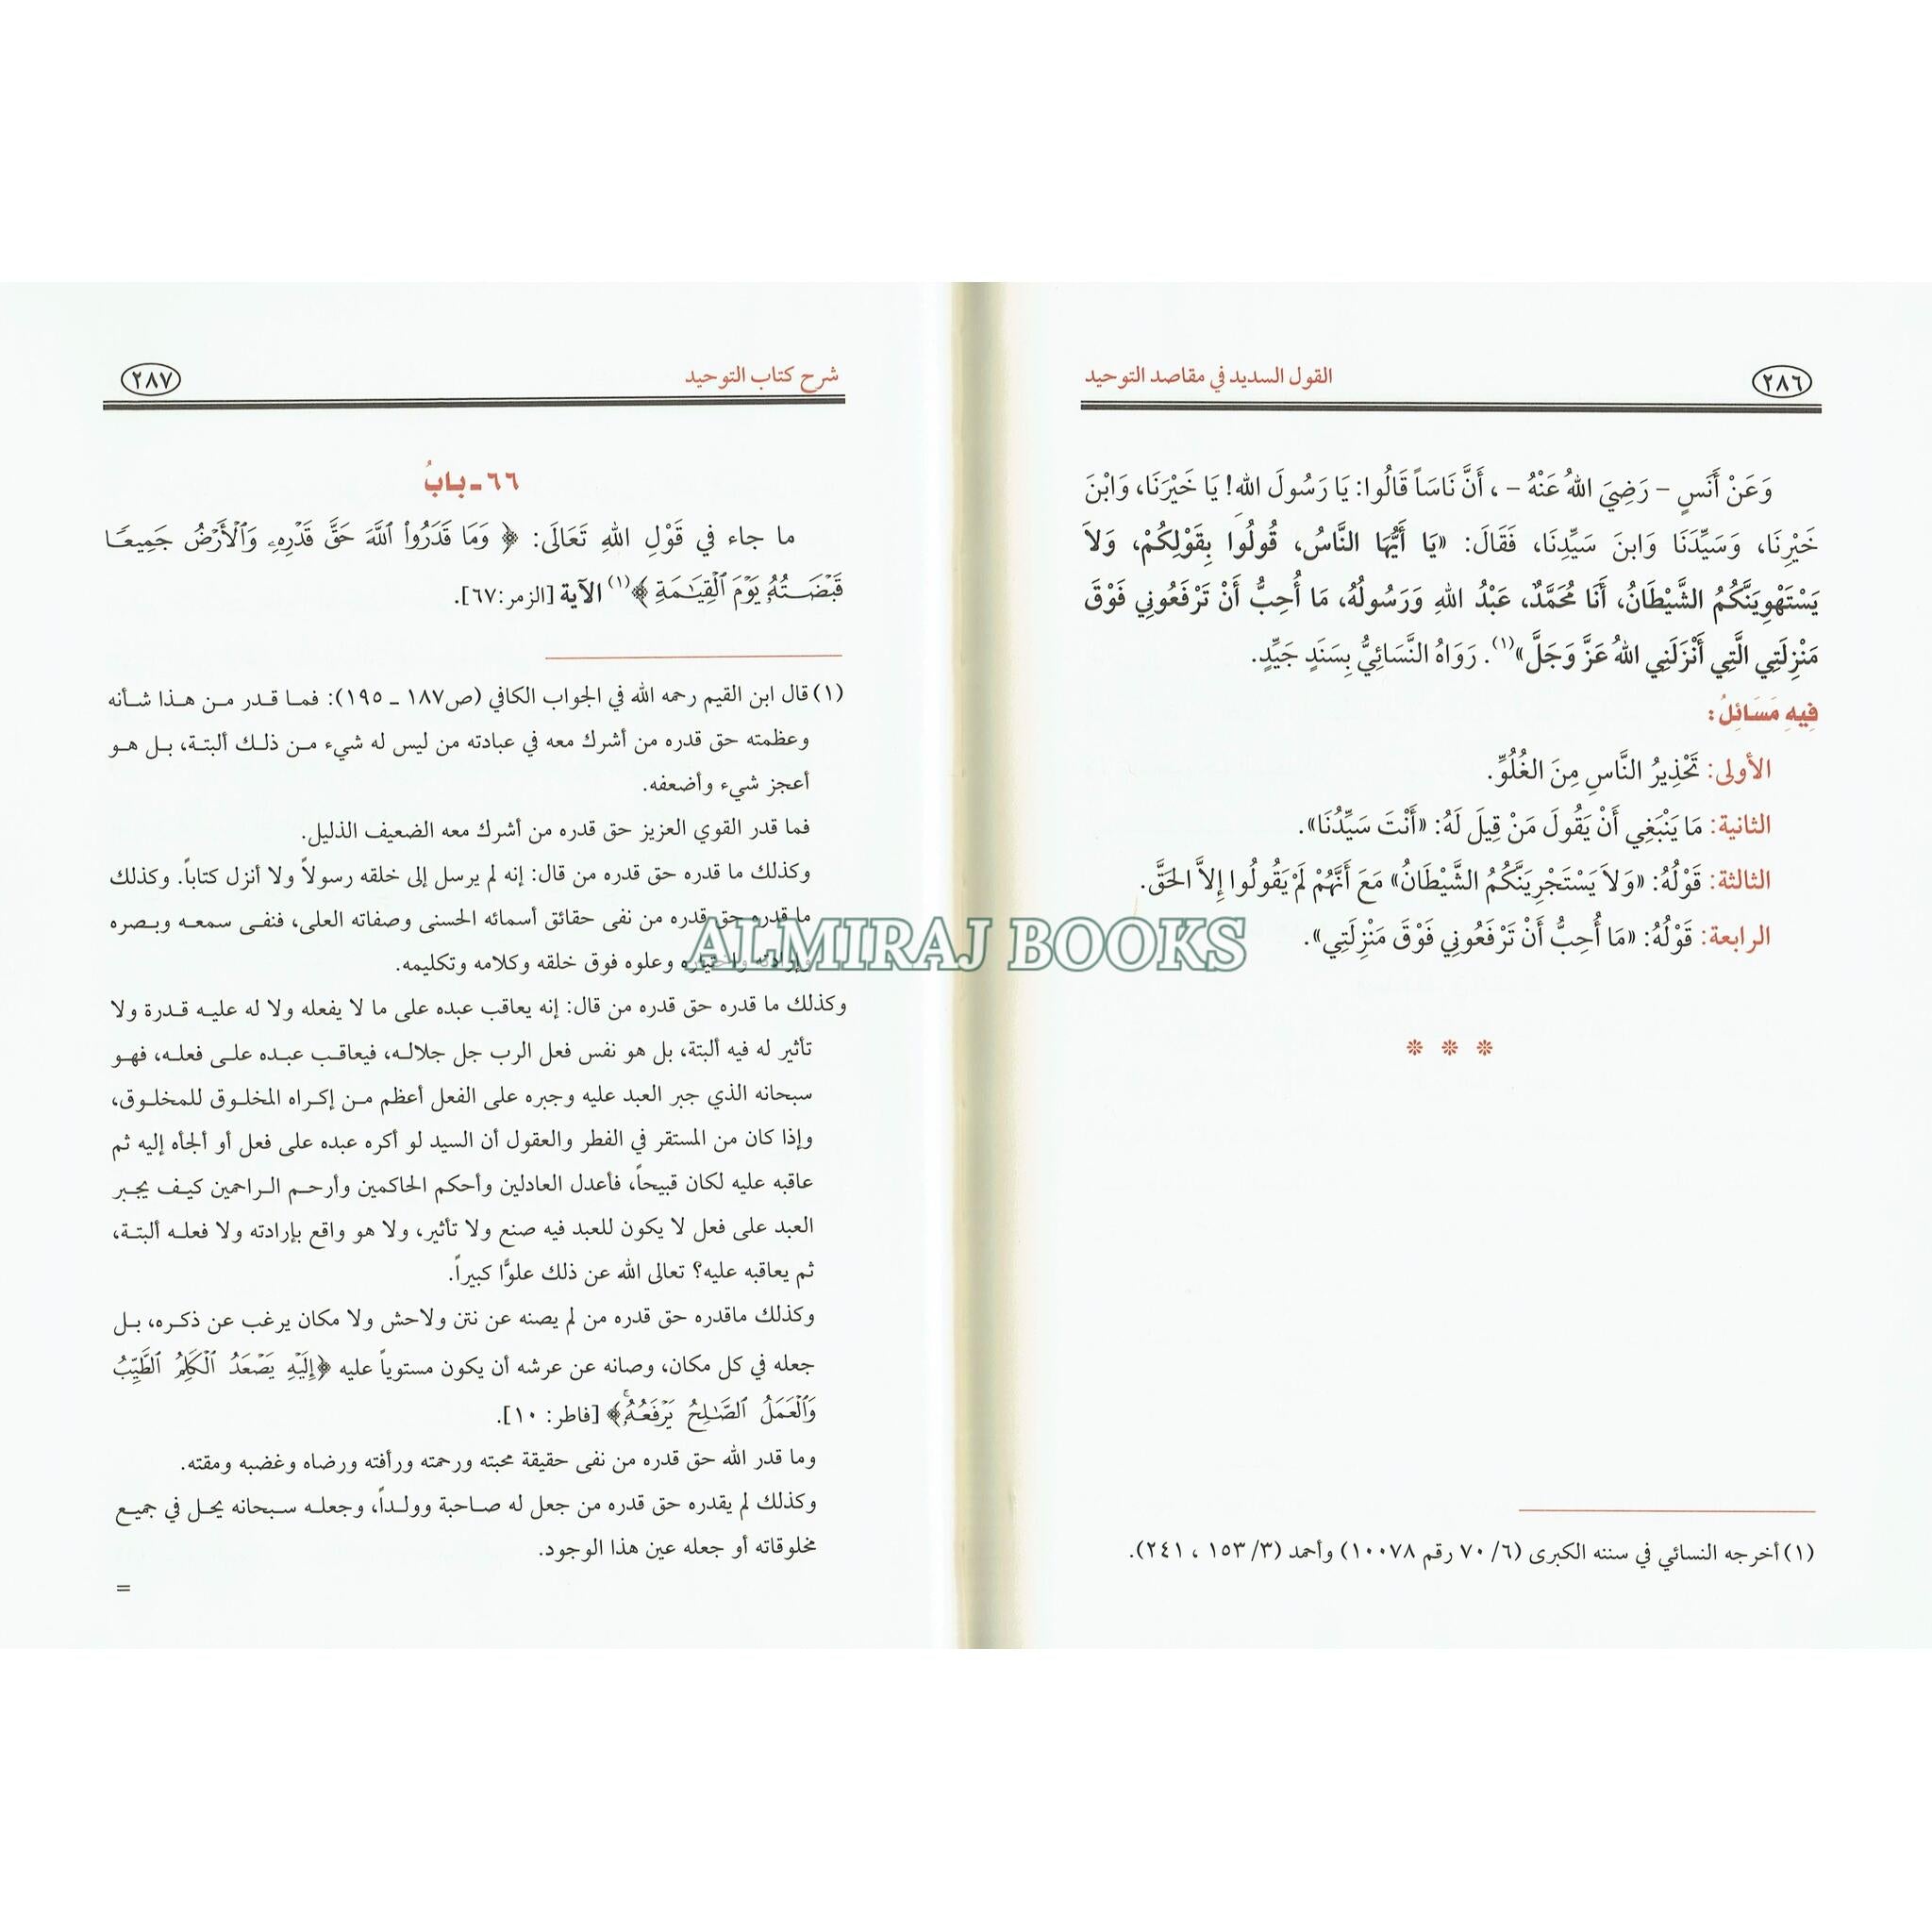 ٢٨٦
القول السديد في مقاصد التوحيد
وَعَنْ أَنَسٍ – رَضِيَ اللهُ عَنْهُ – ، أَنَّ نَاسَاً قَالُوا: يَا رَسُولَ اللهِ! يَا خَيْرَنَا، وَابْنَ
خَيْرِنَا، وَسَيِّدَنَا وَابنَ سَيِّدِنَا، فَقَالَ: «يَا أَيُّهَا النَّاسُ، قُولُوا بِقَوْلِكُمْ، وَلاَ
يَسْتَهْوِيَنَّكُمُ الشَّيْطَانُ، أَنَا مُحَمَّدٌ، عَبْدُ اللهِ وَرَسُولُهُ، مَا أُحِبُّ أَنْ تَرْفَعُونِي فَوْقَ
مَنْزِلَتِي الَّتِي أَنْزَلَنِي اللهُ عَزَّ وَجَلَّ»(١). رَوَاهُ النَّسَائِيُّ بِسَنَدٍ جَيِّدٍ.
فِيهِ مَسَائِلُ:
الأولى: تَحْذِيرُ النَّاسِ مِنَ الغُلُوِّ.
الثانية: مَا يَنْبَغِي أَنْ يَقُولَ مَنْ قِيلَ لَهُ: «أَنْتَ سَيِّدُنَا».
الثالثة: قَوْلُهُ: «وَلاَ يَسْتَجْرِيَنَّكُمُ الشَّيْطَانُ» مَعَ أَنَّهُمْ لَمْ يَقُولُوا إِلاَّ الحَقَّ.
الرابعة: قَوْلُهُ: «مَا أُحِبُّ أَنْ تَرْفَعُونِي فَوْقَ مَنْزِلَتِي».
(١) أخرجه النسائي في سننه الكبرى (٦/ ٧٠ رقم ١٠٠٧٨) وأحمد (٣/ ١٥٣ ، ٢٤١).
شرح كتاب التوحيد
٢٨٧
٦٦ ـ بابُ
ما جاء في قَوْلِ اللهِ تَعَالَى: ﴿ وَمَا قَدَرُواْ ٱللَّهَ حَقَّ قَدۡرِهِۦ وَٱلۡأَرۡضُ جَمِيعٗا
قَبۡضَتُهُۥ يَوۡمَ ٱلۡقِيَٰمَةِ ﴾(١) الآية [الزمر:٦٧].
(١) قال ابن القيم رحمه الله في الجواب الكافي (ص١٨٧ ـ ١٩٥): فمـا قـدر مـن هـذا شـأنه
وعظمته حق قدره من أشرك معه في عبادته من ليس له شيء مـن ذلـك ألبتـة، بـل هـو
أعجز شيء وأضعفه.
فما قدر القوي العزيز حق قدره من أشرك معه الضعيف الذليل.
وكذلك ما قدره حق قدره من قال: إنه لم يرسل إلى خلقه رسولاً ولا أنزل كتاباً. وكذلك
ما قدره حق قدره من نفى حقائق أسمائه الحسنى وصفاته العلى، فنفـى سمعـه وبـصره
وإرادته واختياره وعلوه فوق خلقه وكلامه وتكليمه.
ALMIRAJ BOOKS
وكذلك ما قدره حق قدره من قال: إنه يعاقب عبده على ما لا يفعله ولا له عليـه قـدرة ولا
تأثير له فيه ألبتة، بل هو نفس فعل الرب جل جلالـه، فيعاقـب عبـده علـى فعلـه، فهـو
سبحانه الذي جبر العبد عليه وجبره على الفعل أعظم مـن إكـراه المخلـوق للمخلـوق،
وإذا كان من المستقر في الفطر والعقول أن السيد لو أكره عبده على فعل أو ألجأه إليه ثم
عاقبه عليه لكان قبيحاً، فأعدل العادلين وأحكم الحاكمين وأرحـم الـراحمين كيـف يجـبر
العبد على فعل لا يكون للعبد فيه صنع ولا تأثير، ولا هو واقع بإرادته ولا فعلـه ألبتـة،
ثم يعاقبه عليه؟ تعالى الله عن ذلك علوًّا كبيراً.
وكذلك ماقدره حق قدره من لم يصنه عن نتن ولاحش ولا مكان يرغب عن ذكـره، بـل
جعله في كل مكان، وصانه عن عرشه أن يكون مستوياً عليه ﴿إِلَيۡهِ يَصۡعَدُ ٱلۡكَلِمُ ٱلطَّيِّبُ
وَٱلۡعَمَلُ ٱلصَّٰلِحُ يَرۡفَعُهُۥۚ﴾ [فاطر: ١٠].
وما قدر الله حق قدره من نفى حقيقة محبته ورحمته ورأفته ورضاه وغضبه ومقته.
وكذلك لم يقدره حق قدره من جعل له صـاحبة وولـداً، وجعلـه سـبحانه يحـل في جميـع
مخلوقاته أو جعله عين هذا الوجود.
=